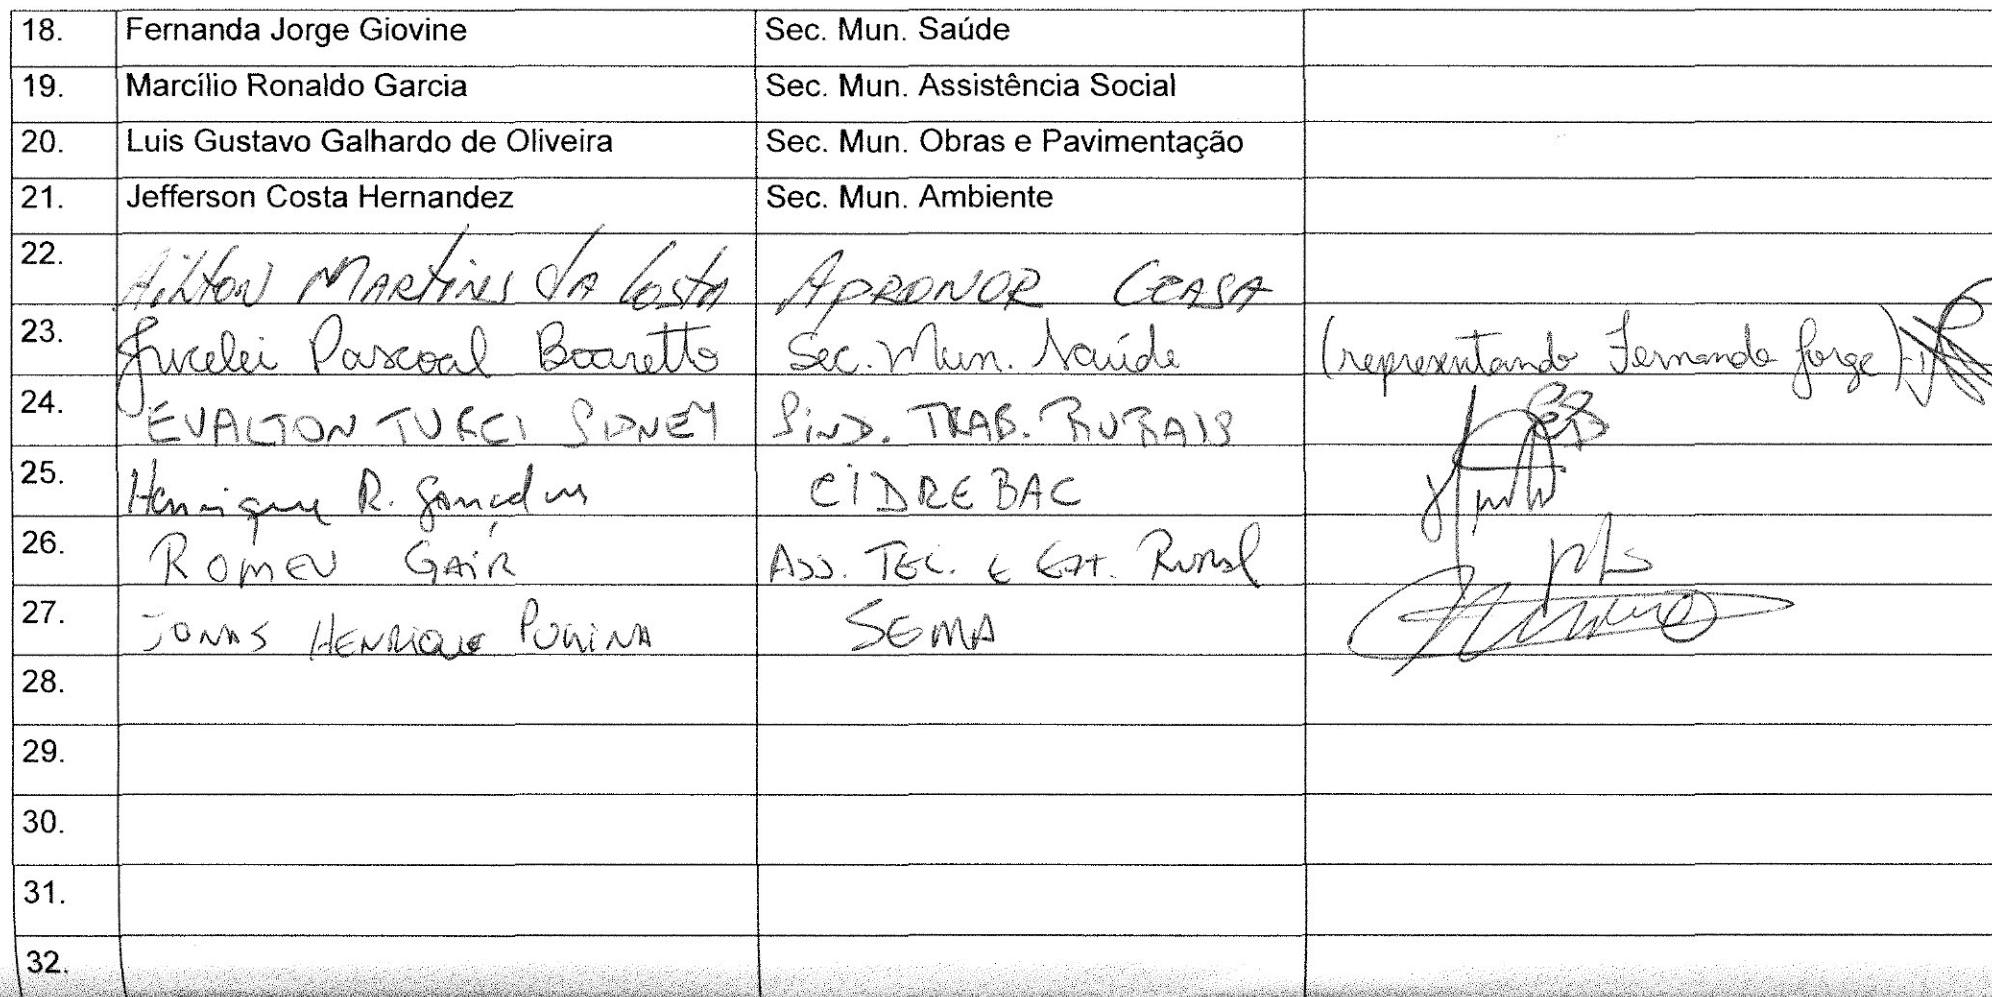 18. Fernanda Jorge Giovine Sec. Mun. Saúde
19. Marcílio Ronaldo Garcia Sec. Mun. Assistência Social
20. Luis Gustavo Galhardo de Oliveira Sec. Mun. Obras e Pavimentação
21. Jefferson Costa Hernandez Sec. Mun. Ambiente
22. Ailton Martins da Costa APRONOR CEASA
23. Jucelei Pascoal Boaretto Sec. Mun. Saúde (representando Fernanda Jorge)
24. EVALTON TURCI SIDNEY SIND. TRAB. RURAIS
25. Henrique R. CIDREBAC
26. ROMEU GAIR ASS. TEC. E EXT. Rural
27. JONAS HENRIQUE PUGINA SEMA
28.
29.
30.
31.
32.